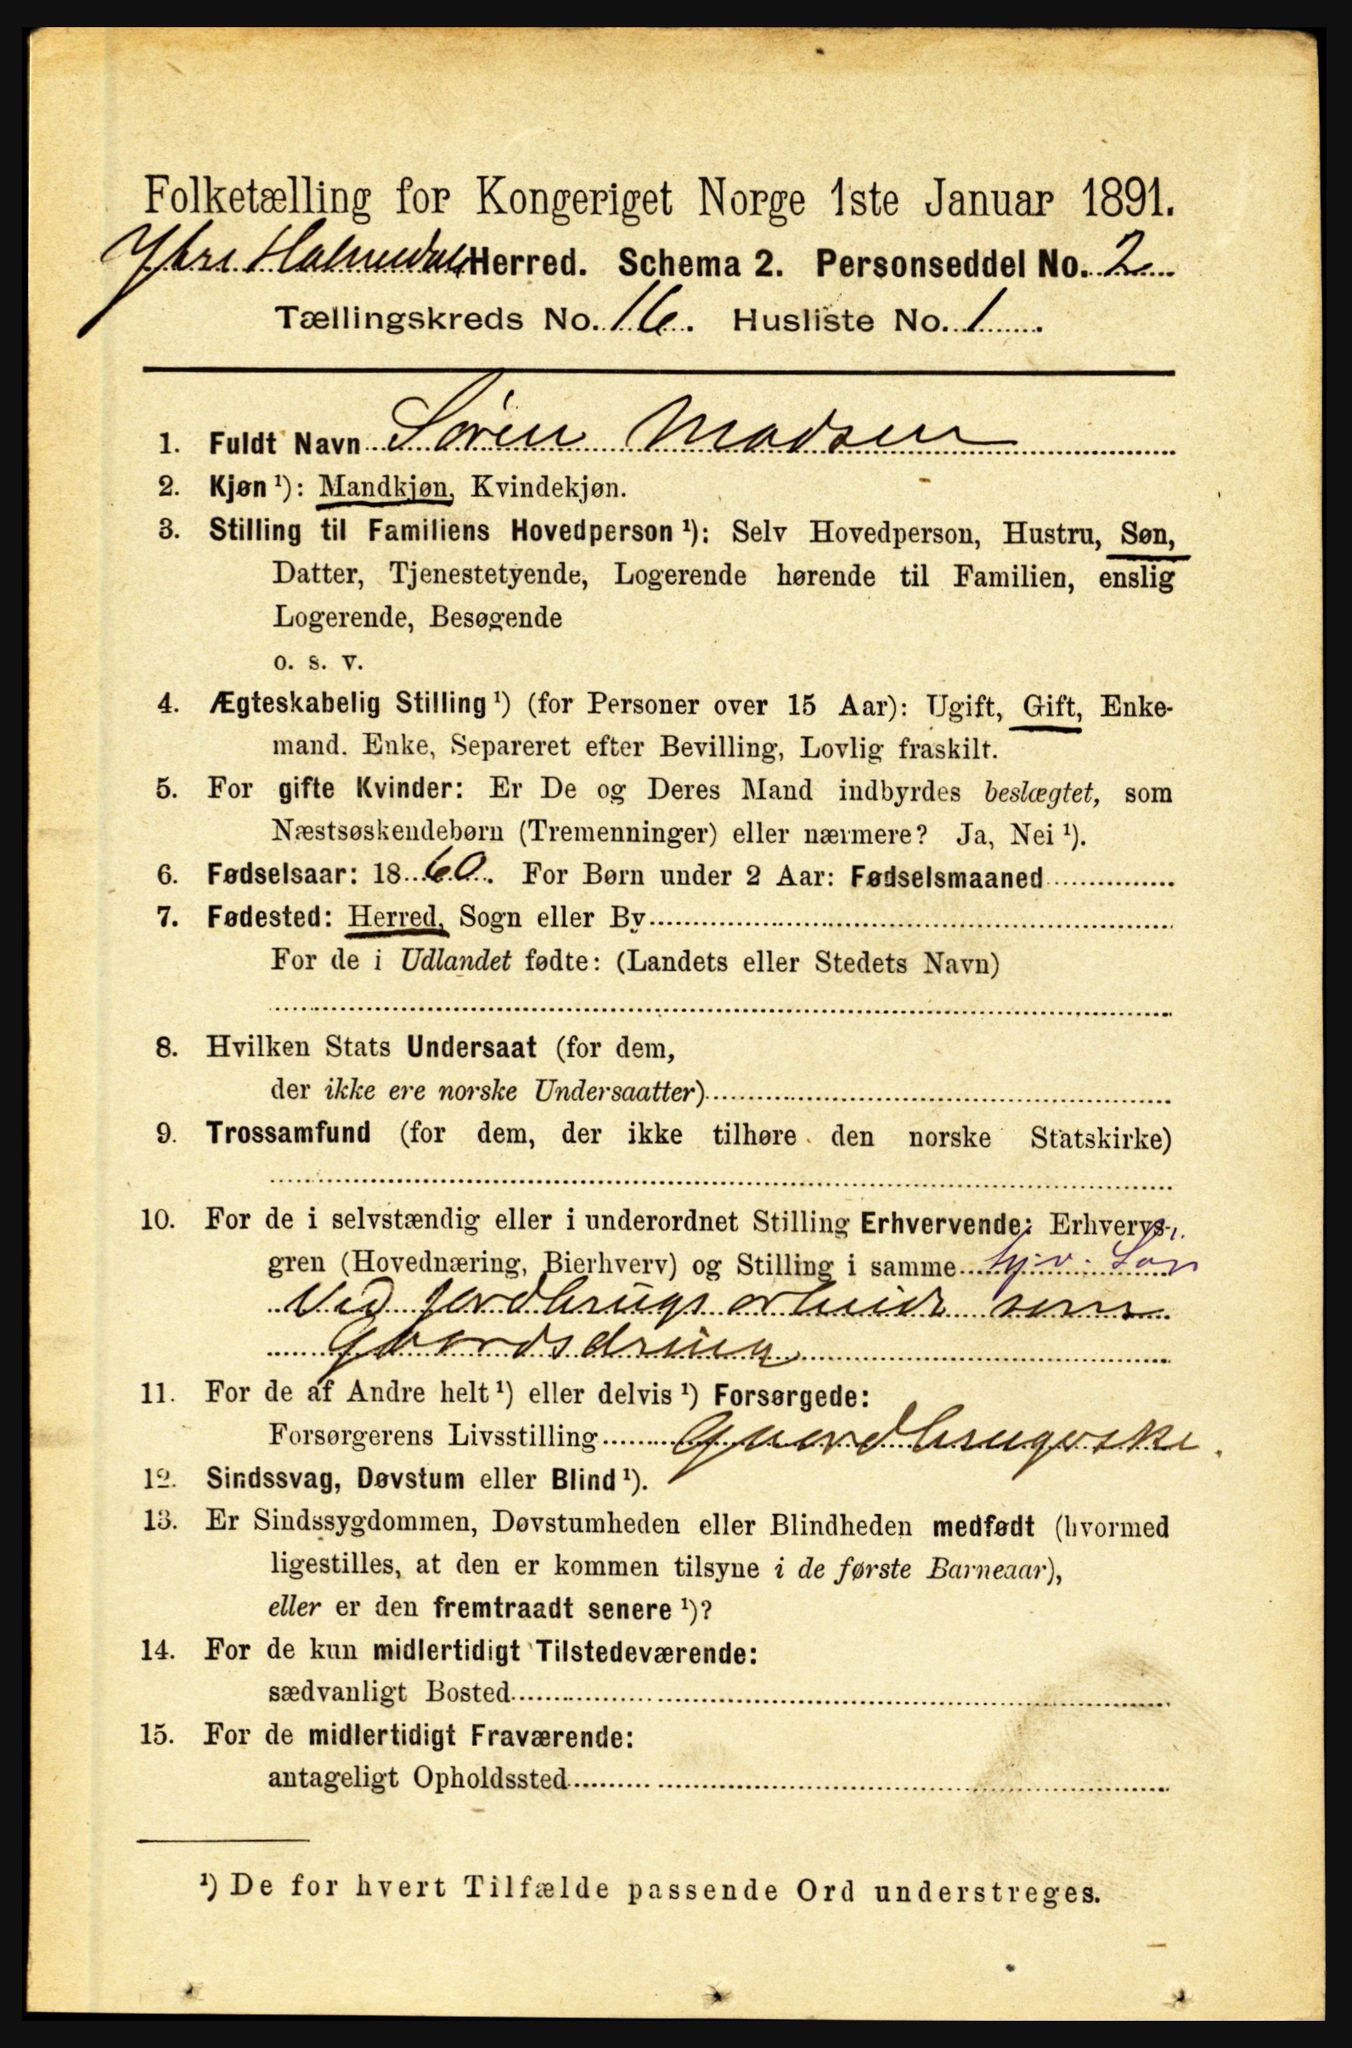 Folketælling for Kongeriget Norge 1ste Januar 1891.
Ytre Holmedal Herred. Schema 2. Personseddel No. 2
Tællingskreds No. 16. Husliste No. 1.
1. Fuldt Navn Søren Madsen
2. Kjøn ¹): Mandkjøn, Kvindekjøn.
3. Stilling til Familiens Hovedperson ¹): Selv Hovedperson, Hustru, Søn,
Datter, Tjenestetyende, Logerende hørende til Familien, enslig
Logerende, Besøgende
o. s. v.
4. Ægteskabelig Stilling ¹) (for Personer over 15 Aar): Ugift, Gift, Enke-
mand. Enke, Separeret efter Bevilling, Lovlig fraskilt.
5. For gifte Kvinder: Er De og Deres Mand indbyrdes beslægtet, som
Næstsøskendebørn (Tremenninger) eller nærmere? Ja, Nei ¹).
6. Fødselsaar: 1860. For Børn under 2 Aar: Fødselsmaaned
7. Fødested: Herred, Sogn eller By
For de i Udlandet fødte: (Landets eller Stedets Navn)
8. Hvilken Stats Undersaat (for dem,
der ikke ere norske Undersaatter)
9. Trossamfund (for dem, der ikke tilhøre den norske Statskirke)
10. For de i selvstændig eller i underordnet Stilling Erhvervende: Erhvervs-
gren (Hovednæring, Bierhverv) og Stilling i samme Hjv. Søn
Ved jordbrugsarbeide som
Gaardsdreng
11. For de af Andre helt ¹) eller delvis ¹) Forsørgede:
Forsørgerens Livsstilling
12. Sindssvag, Døvstum eller Blind ¹).
13. Er Sindssygdommen, Døvstumheden eller Blindheden medfødt (hvormed
ligestilles, at den er kommen tilsyne i de første Barneaar),
eller er den fremtraadt senere ¹)?
14. For de kun midlertidigt Tilstedeværende:
sædvanligt Bosted
15. For de midlertidigt Fraværende:
antageligt Opholdssted
¹) De for hvert Tilfælde passende Ord understreges.